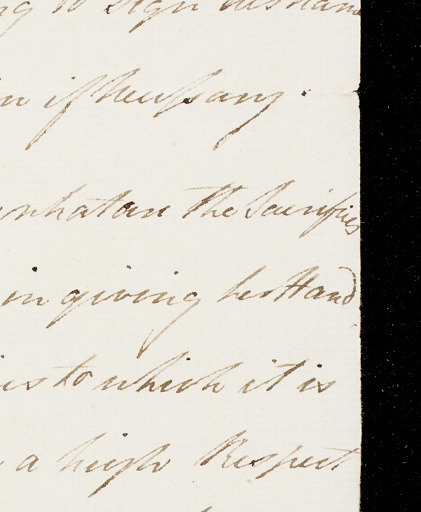 to sign his name
if necessary.
what are the Sacrifices
in giving her Hand
to which it is
a high Respect